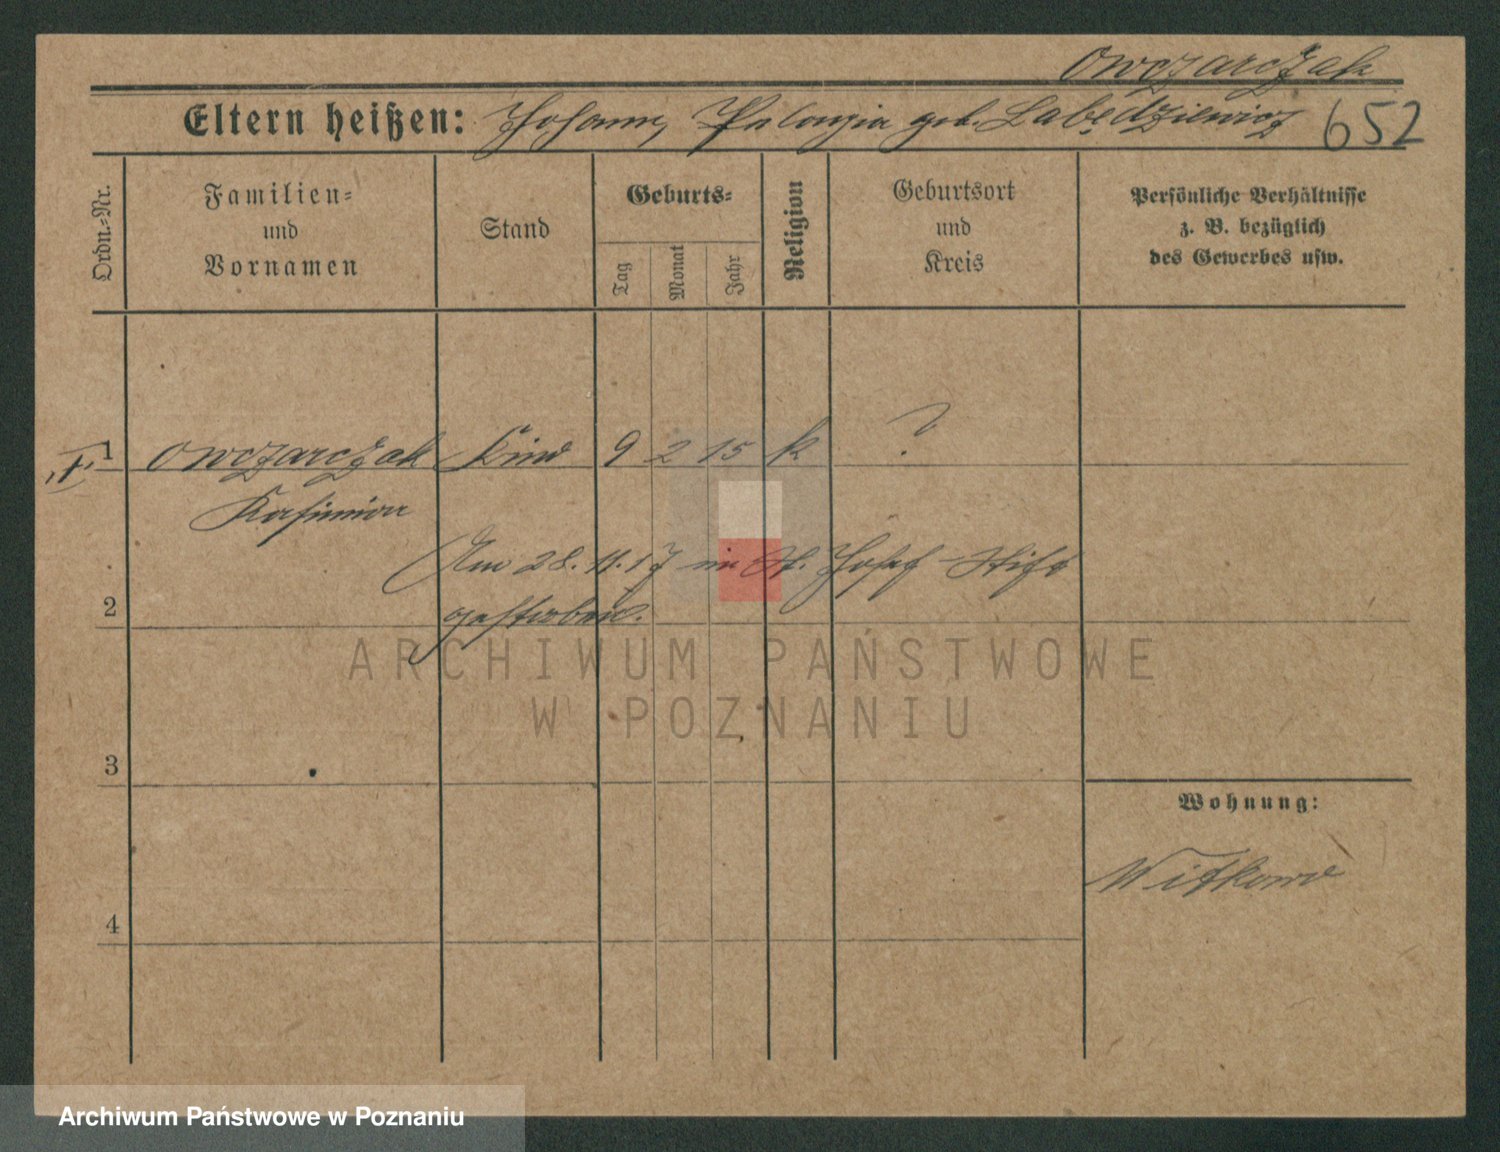 Owczarczak
Eltern heißen: Johann, Pelagia geb. Labędziewicz 652
Ordn.-Nr.
Familien-
und
Vornamen
Stand
Geburts-
Tag
Monat
Jahr
Religion
Geburtsort
und
Kreis
Persönliche Verhältnisse
z. B. bezüglich
des Gewerbes usw.
1 Owczarczak Kind 9 2 15 k ?
Kasimir
Am 28. 11. 17 im St. Josef Stift
2 gestorben.
ARCHIWUM PAŃSTWOWE
W POZNANIU
3
Wohnung:
Witkowo
4
Archiwum Państwowe w Poznaniu